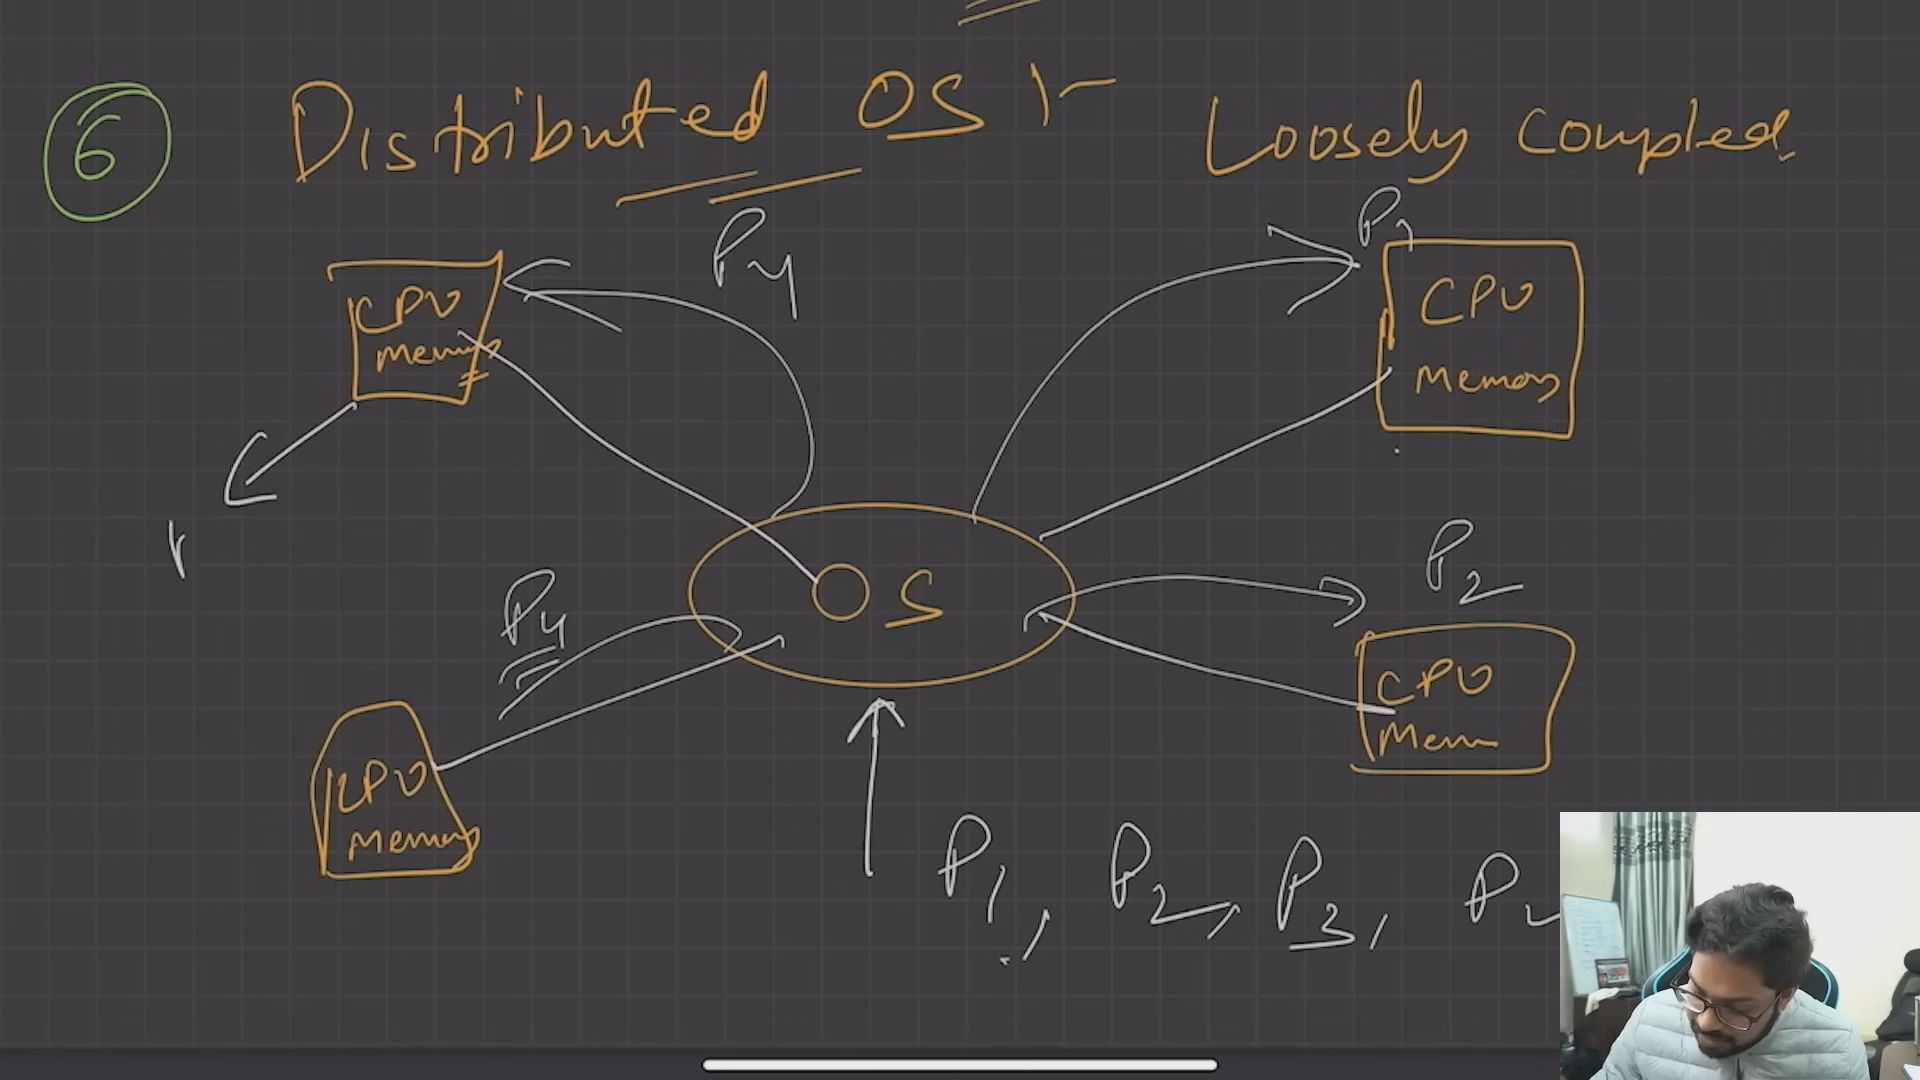 6
Distributed OS :-
Loosely Coupled
P1
P4
CPU
Memory
CPU
Memory
OS
P2
P4
CPU
Mem
CPU
Memory
P1, P2, P3, P